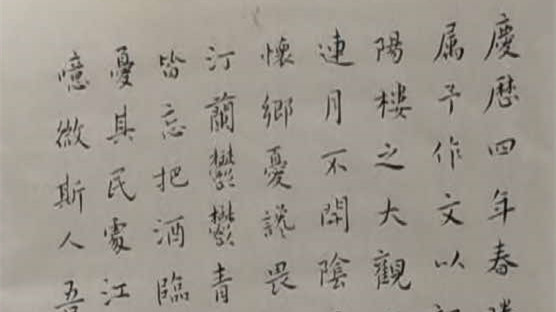 慶歷四年春
属予作文以
陽樓之大觀
連月不開陰
懷鄉憂讒畏
汀蘭鬱鬱青
皆忘把酒臨
憂其民處江
噫微斯人吾